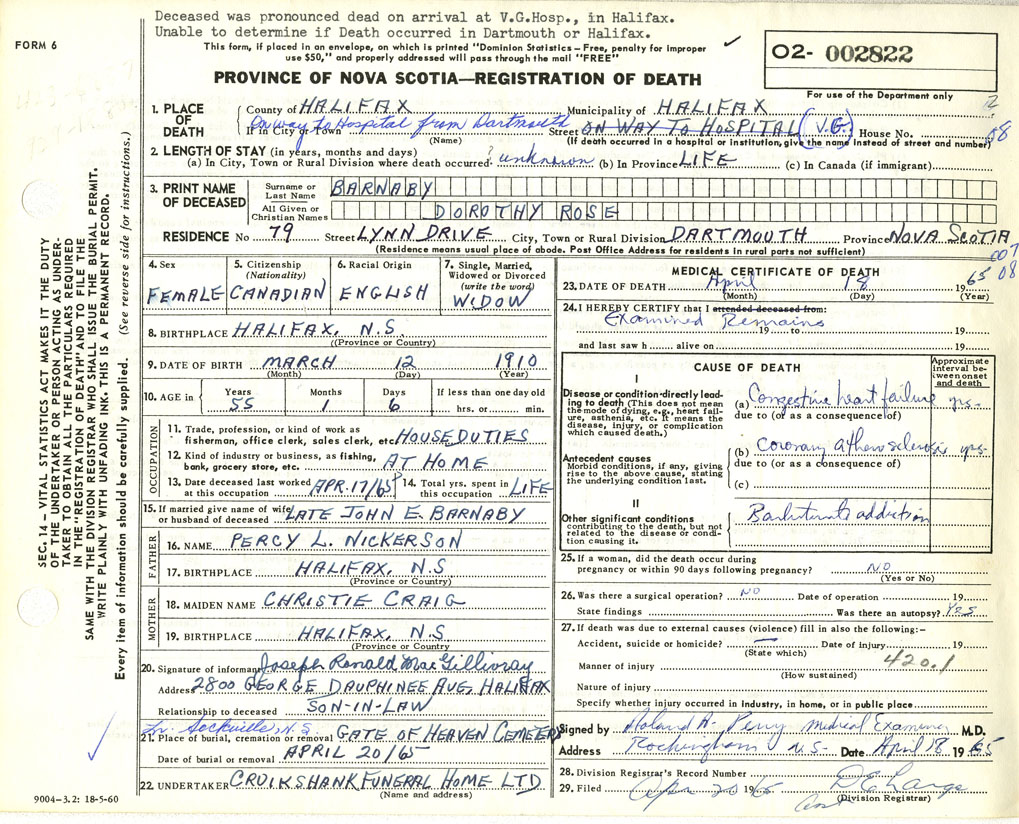 Deceased was pronounced dead on arrival at V.G.Hosp., in Halifax.
Unable to determine if Death occurred in Dartmouth or Halifax.
FORM 6
This form, if placed in an envelope, on which is printed "Dominion Statistics - Free, penalty for improper
use $50," and properly addressed will pass through the mail "FREE"
PROVINCE OF NOVA SCOTIA—REGISTRATION OF DEATH
02- 002822
For use of the Department only
SEC. 14 – VITAL STATISTICS ACT MAKES IT THE DUTY
OF THE UNDERTAKER OR PERSON ACTING AS UNDER-
TAKER TO OBTAIN ALL THE PARTICULARS REQUIRED
IN THE "REGISTRATION OF DEATH" AND TO FILE THE
SAME WITH THE DIVISION REGISTRAR WHO SHALL ISSUE THE BURIAL PERMIT.
WRITE PLAINLY WITH UNFADING INK. THIS IS A PERMANENT RECORD.
Every item of information should be carefully supplied. (See reverse side for instructions.)
1. PLACE OF DEATH
County of HALIFAX Municipality of HALIFAX
On way to Hospital from Dartmouth
If in City or Town (Name) Street ON WAY TO HOSPITAL (V.G.) House No. 08
(If death occurred in a hospital or institution, give the name instead of street and number)
2. LENGTH OF STAY (in years, months and days)
(a) In City, Town or Rural Division where death occurred ? unknown (b) In Province LIFE (c) In Canada (if immigrant)
3. PRINT NAME OF DECEASED
Surname or Last Name BARNABY
All Given or Christian Names DOROTHY ROSE
RESIDENCE No 79 Street LYNN DRIVE City, Town or Rural Division DARTMOUTH Province NOVA SCOTIA
(Residence means usual place of abode. Post Office Address for residents in rural parts not sufficient)
007
08
4. Sex FEMALE
5. Citizenship (Nationality) CANADIAN
6. Racial Origin ENGLISH
7. Single, Married, Widowed or Divorced (write the word) WIDOW
8. BIRTHPLACE HALIFAX, N.S
(Province or Country)
9. DATE OF BIRTH MARCH 12 1910
(Month) (Day) (Year)
10. AGE in Years 55 Months 1 Days 6 If less than one day old hrs. or min.
OCCUPATION
11. Trade, profession, or kind of work as
fisherman, office clerk, sales clerk, etc. HOUSE DUTIES
12. Kind of industry or business, as fishing,
bank, grocery store, etc. AT HOME
13. Date deceased last worked at this occupation APR. 17/65
14. Total yrs. spent in this occupation LIFE
15. If married give name of wife or husband of deceased LATE JOHN E. BARNABY
FATHER
16. NAME PERCY L. NICKERSON
17. BIRTHPLACE HALIFAX, N.S
(Province or Country)
MOTHER
18. MAIDEN NAME CHRISTIE CRAIG
19. BIRTHPLACE HALIFAX, N.S
(Province or Country
20. Signature of informant Joseph Ronald MacGillivray
Address 2800 GEORGE DAUPHINEE AVE, HALIFAX
Relationship to deceased SON-IN-LAW
Lr. Sackville, N.S.
21. Place of burial, cremation or removal GATE OF HEAVEN CEMETERY
Date of burial or removal APRIL 20/65
22. UNDERTAKER CRUIKSHANK FUNERAL HOME LTD
(Name and address)
9004-3.2: 18-5-60
MEDICAL CERTIFICATE OF DEATH
23. DATE OF DEATH April 18 1965
(Month) (Day) (Year)
24. I HEREBY CERTIFY that I attended deceased from:
Examined Remains
19 to 19
and last saw h alive on 19
CAUSE OF DEATH
Approximate interval between onset and death
I
Disease or condition directly lead-
ing to death (This does not mean
the mode of dying, e.g., heart fail-
ure, asthenia, etc. It means the
disease, injury, or complication
which caused death.)
(a) Congestive heart failure yrs.
due to (or as a consequence of)
Antecedent causes
Morbid conditions, if any, giving
rise to the above cause, stating
the underlying condition last.
(b) coronary atherosclerosis yrs.
due to (or as a consequence of)
(c)
II
Other significant conditions
contributing to the death, but not
related to the disease or condi-
tion causing it.
Barbiturate addiction
25. If a woman, did the death occur during
pregnancy or within 90 days following pregnancy? NO
(Yes or No)
26. Was there a surgical operation? NO Date of operation 19
State findings Was there an autopsy? Yes
27. If death was due to external causes (violence) fill in also the following:–
Accident, suicide or homicide? — Date of injury 19
(State which)
420.1
Manner of injury
(How sustained)
Nature of injury
Specify whether injury occurred in industry, in home, or in public place
Signed by Roland A. Perry Medical Examiner M.D.
Address Rockingham N.S. Date April 18 1965
28. Division Registrar's Record Number
29. Filed Apr 20 196
(Division Registrar)